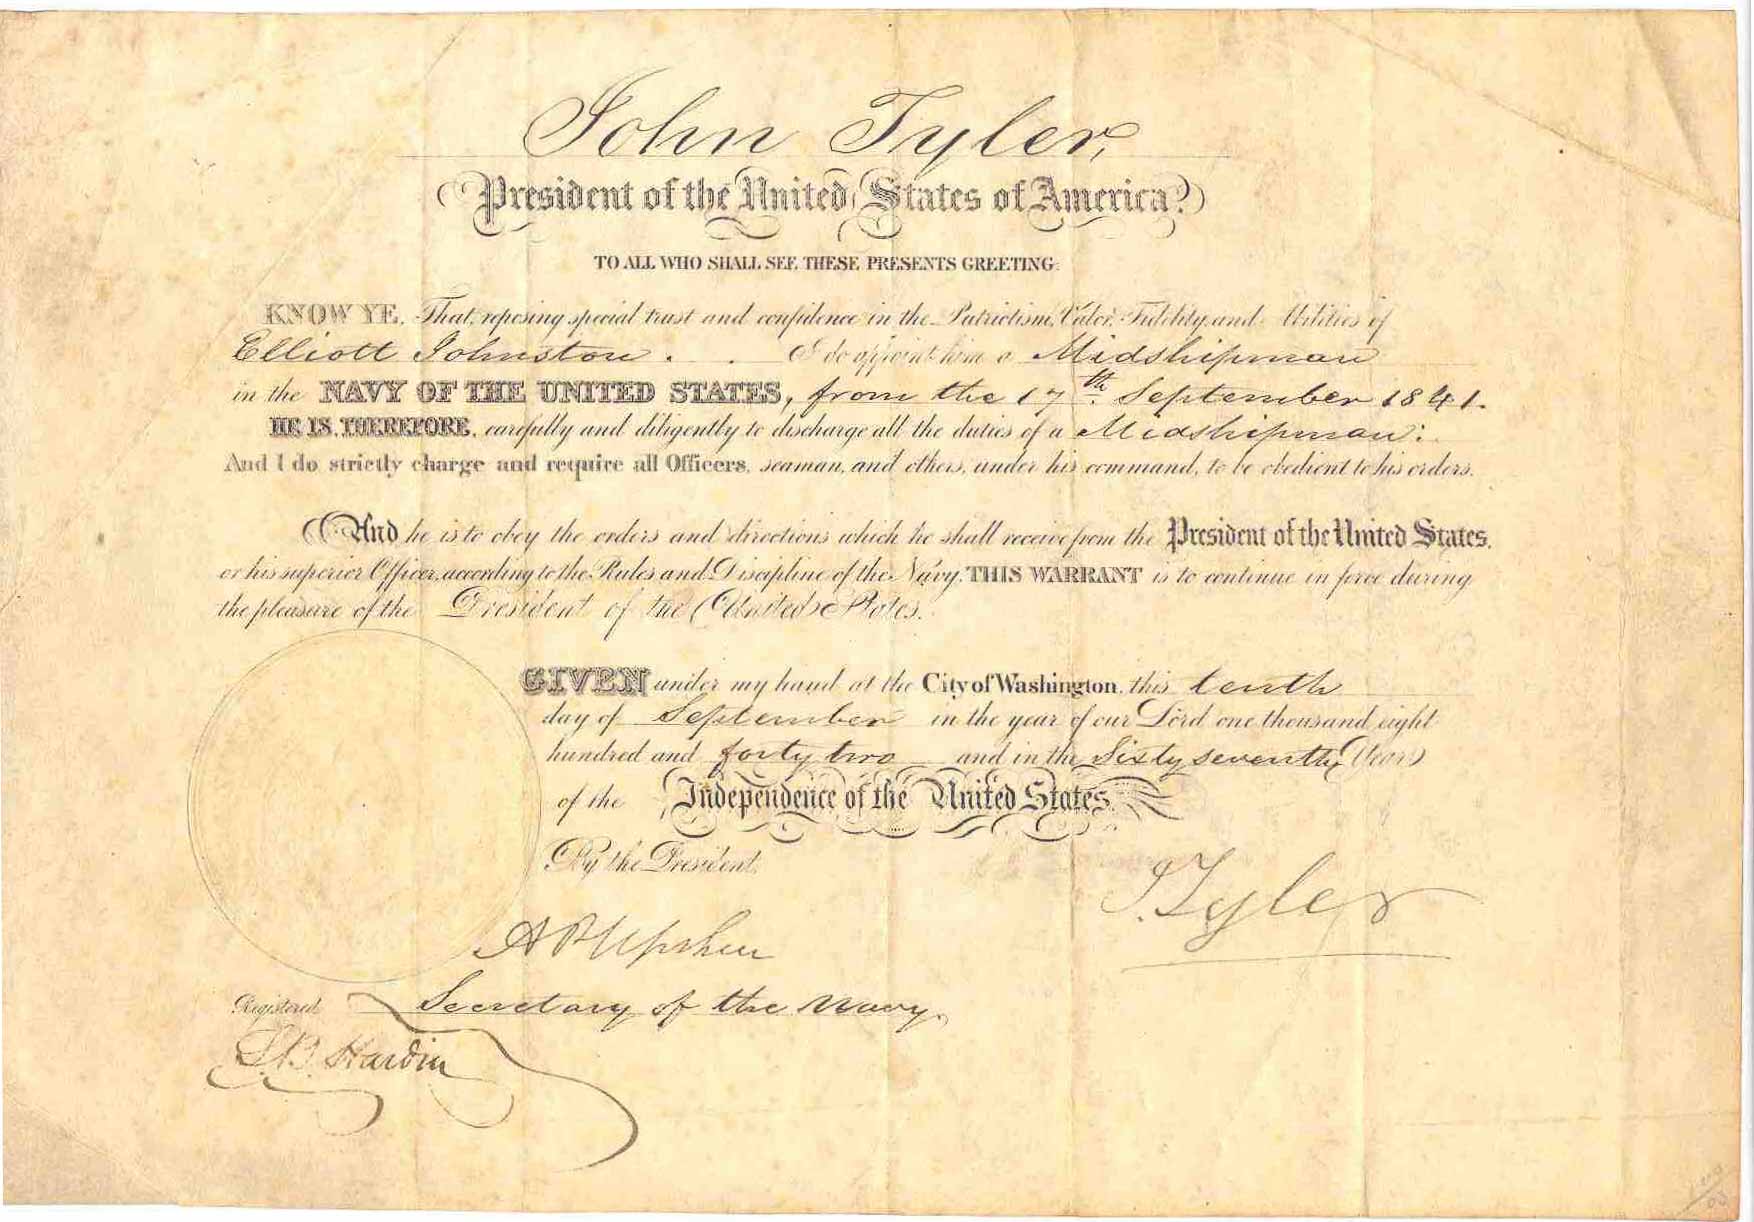 John Tyler,
President of the United States of America.
TO ALL WHO SHALL SEE THESE PRESENTS GREETING:
KNOW YE, That, reposing special trust and confidence in the Patriotism, Valor, Fidelity and Abilities of
Elliott Johnston . . I do appoint him a Midshipman
in the NAVY OF THE UNITED STATES, from the 17th. September 1841.
HE IS, THEREFORE, carefully and diligently to discharge all the duties of a Midshipman:
And I do strictly charge and require all Officers, seaman, and others, under his command, to be obedient to his orders.
And he is to obey the orders and directions which he shall receive from the President of the United States,
or his superior Officer, according to the Rules and Discipline of the Navy. THIS WARRANT is to continue in force during
the pleasure of the President of the United States.
GIVEN under my hand at the City of Washington, this tenth
day of September in the year of our Lord one thousand eight
hundred and forty two and in the Sixty seventh Year
of the Independence of the United States.
By the President,
J. Tyler
A P Upshur
Secretary of the Navy.
Registered
L.B. Hardin